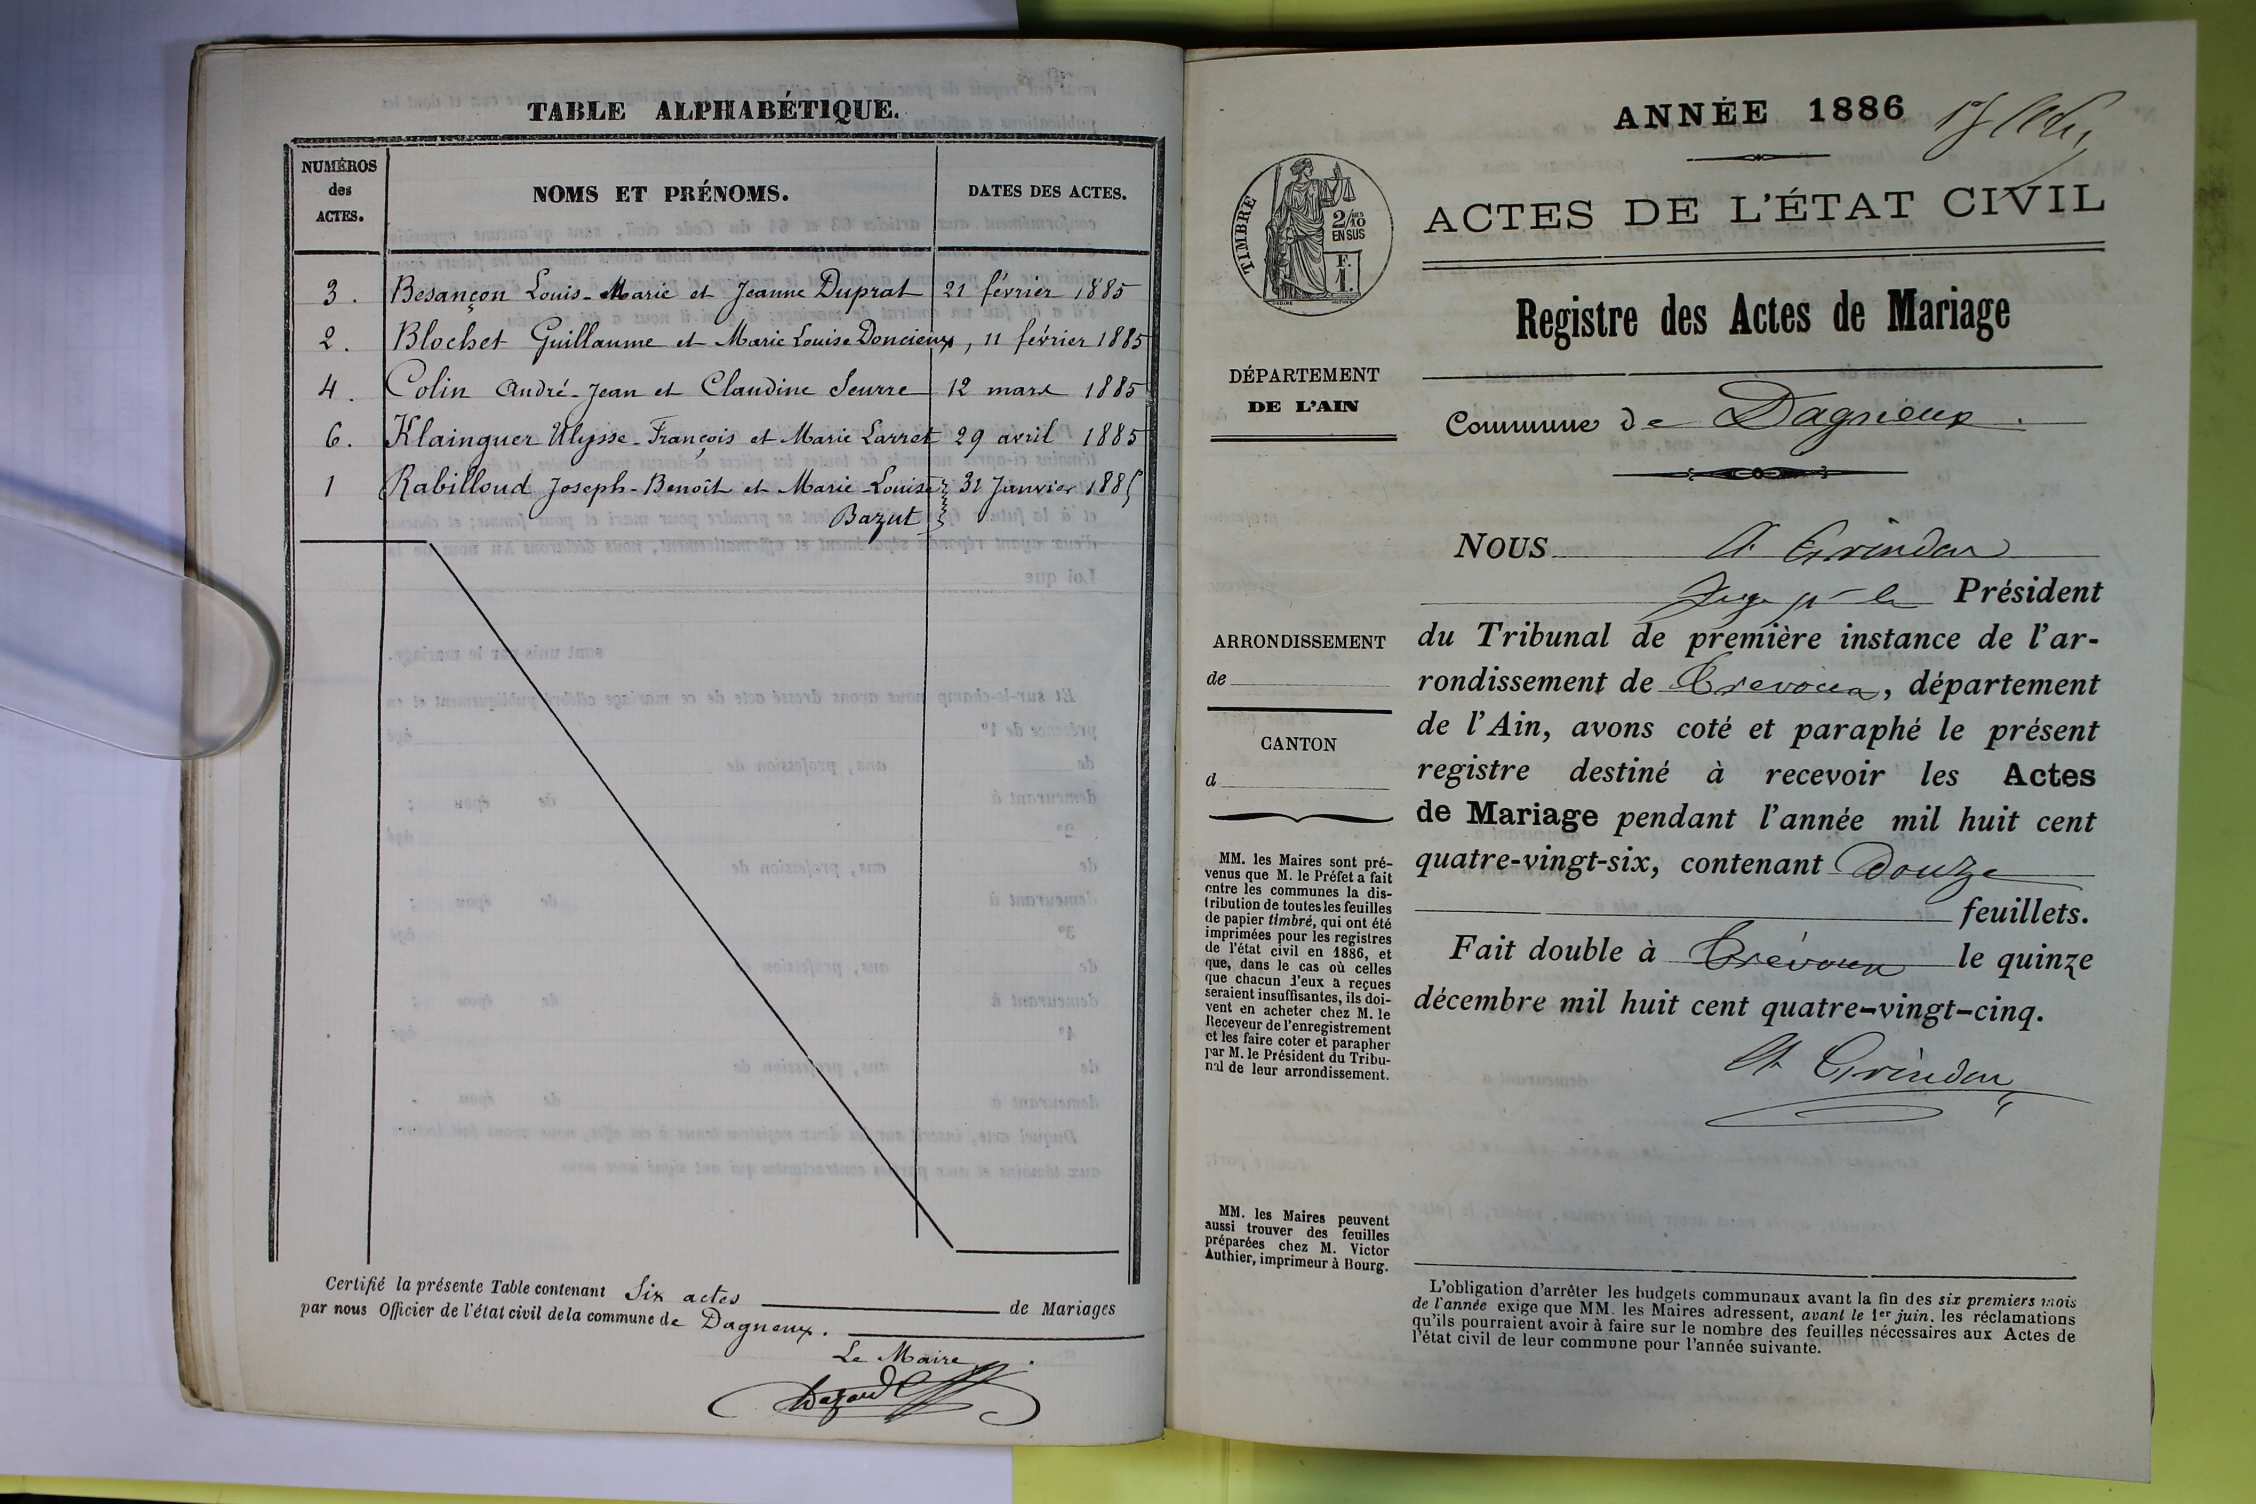 TABLE ALPHABÉTIQUE.
NUMÉROS
des
ACTES.
NOMS ET PRÉNOMS.
DATES DES ACTES.
3. Besançon Louis-Marie et Jeanne Duprat 21 février 1885
2. Blochet Guillaume et Marie Louise Doncieux, 11 février 1885
4. Colin André-Jean et Claudine Seurre 12 mars 1885
6. Klainguer Ulysse-François et Marie Larret 29 avril 1885
1 Rabilloud Joseph-Benoît et Marie-Louise 31 Janvier 1885
Bazut
Certifié la présente Table contenant Six actes de Mariages
par nous Officier de l'état civil de la commune de Dagneux.
Le Maire
ANNÉE 1886
ACTES DE L'ÉTAT CIVIL
TIMBRE
2/10
EN SUS
F.
1.
Registre des Actes de Mariage
DÉPARTEMENT
DE L'AIN
Commune de Dagneux.
NOUS A. Grindon
Juge pr le Président
du Tribunal de première instance de l'ar-
rondissement de Trévoux, département
de l'Ain, avons coté et paraphé le présent
registre destiné à recevoir les Actes
de Mariage pendant l'année mil huit cent
quatre-vingt-six, contenant Douze
feuillets.
Fait double à Trévoux le quinze
décembre mil huit cent quatre-vingt-cinq.
A. Grindon
ARRONDISSEMENT
de
CANTON
d
MM. les Maires sont pré-
venus que M. le Préfet a fait
entre les communes la dis-
tribution de toutes les feuilles
de papier timbré, qui ont été
imprimées pour les registres
de l'état civil en 1886, et
que, dans le cas où celles
que chacun d'eux a reçues
seraient insuffisantes, ils doi-
vent en acheter chez M. le
Receveur de l'enregistrement
et les faire coter et parapher
par M. le Président du Tribu-
nal de leur arrondissement.
MM. les Maires peuvent
aussi trouver des feuilles
préparées chez M. Victor
Authier, imprimeur à Bourg.
L'obligation d'arrêter les budgets communaux avant la fin des six premiers mois
de l'année exige que MM. les Maires adressent, avant le 1er juin, les réclamations
qu'ils pourraient avoir à faire sur le nombre des feuilles nécessaires aux Actes de
l'état civil de leur commune pour l'année suivante.